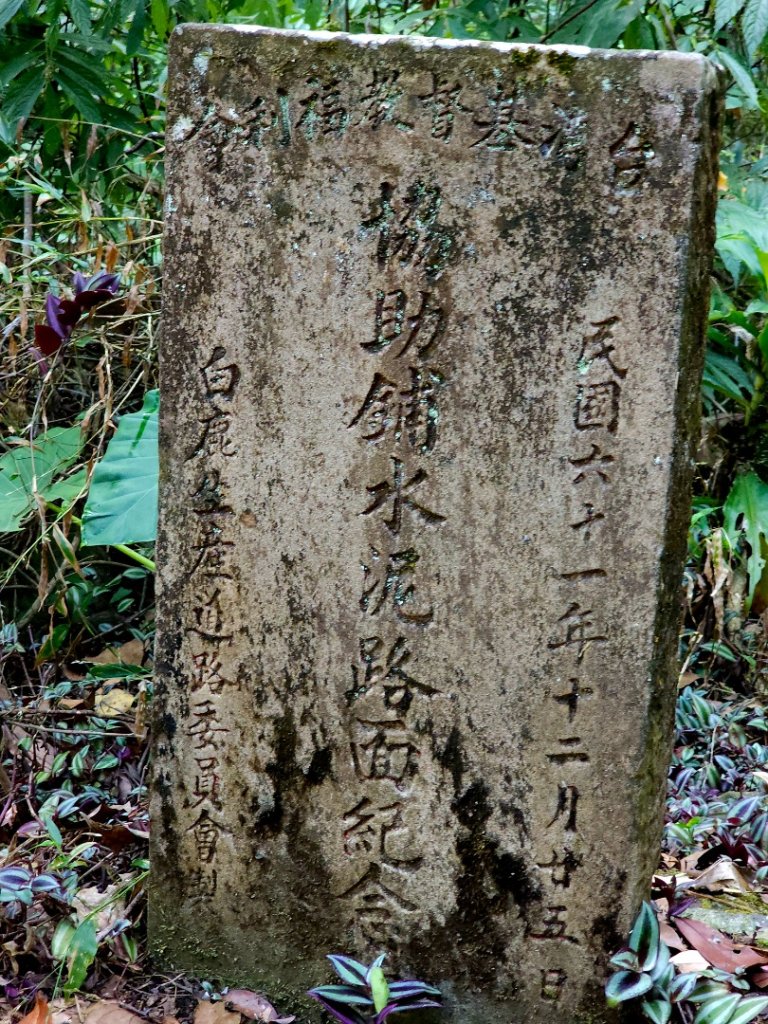 台灣基督教福利會
民國六十一年十二月廿五日
協助鋪水泥路面紀念
白鹿生產道路委員會製